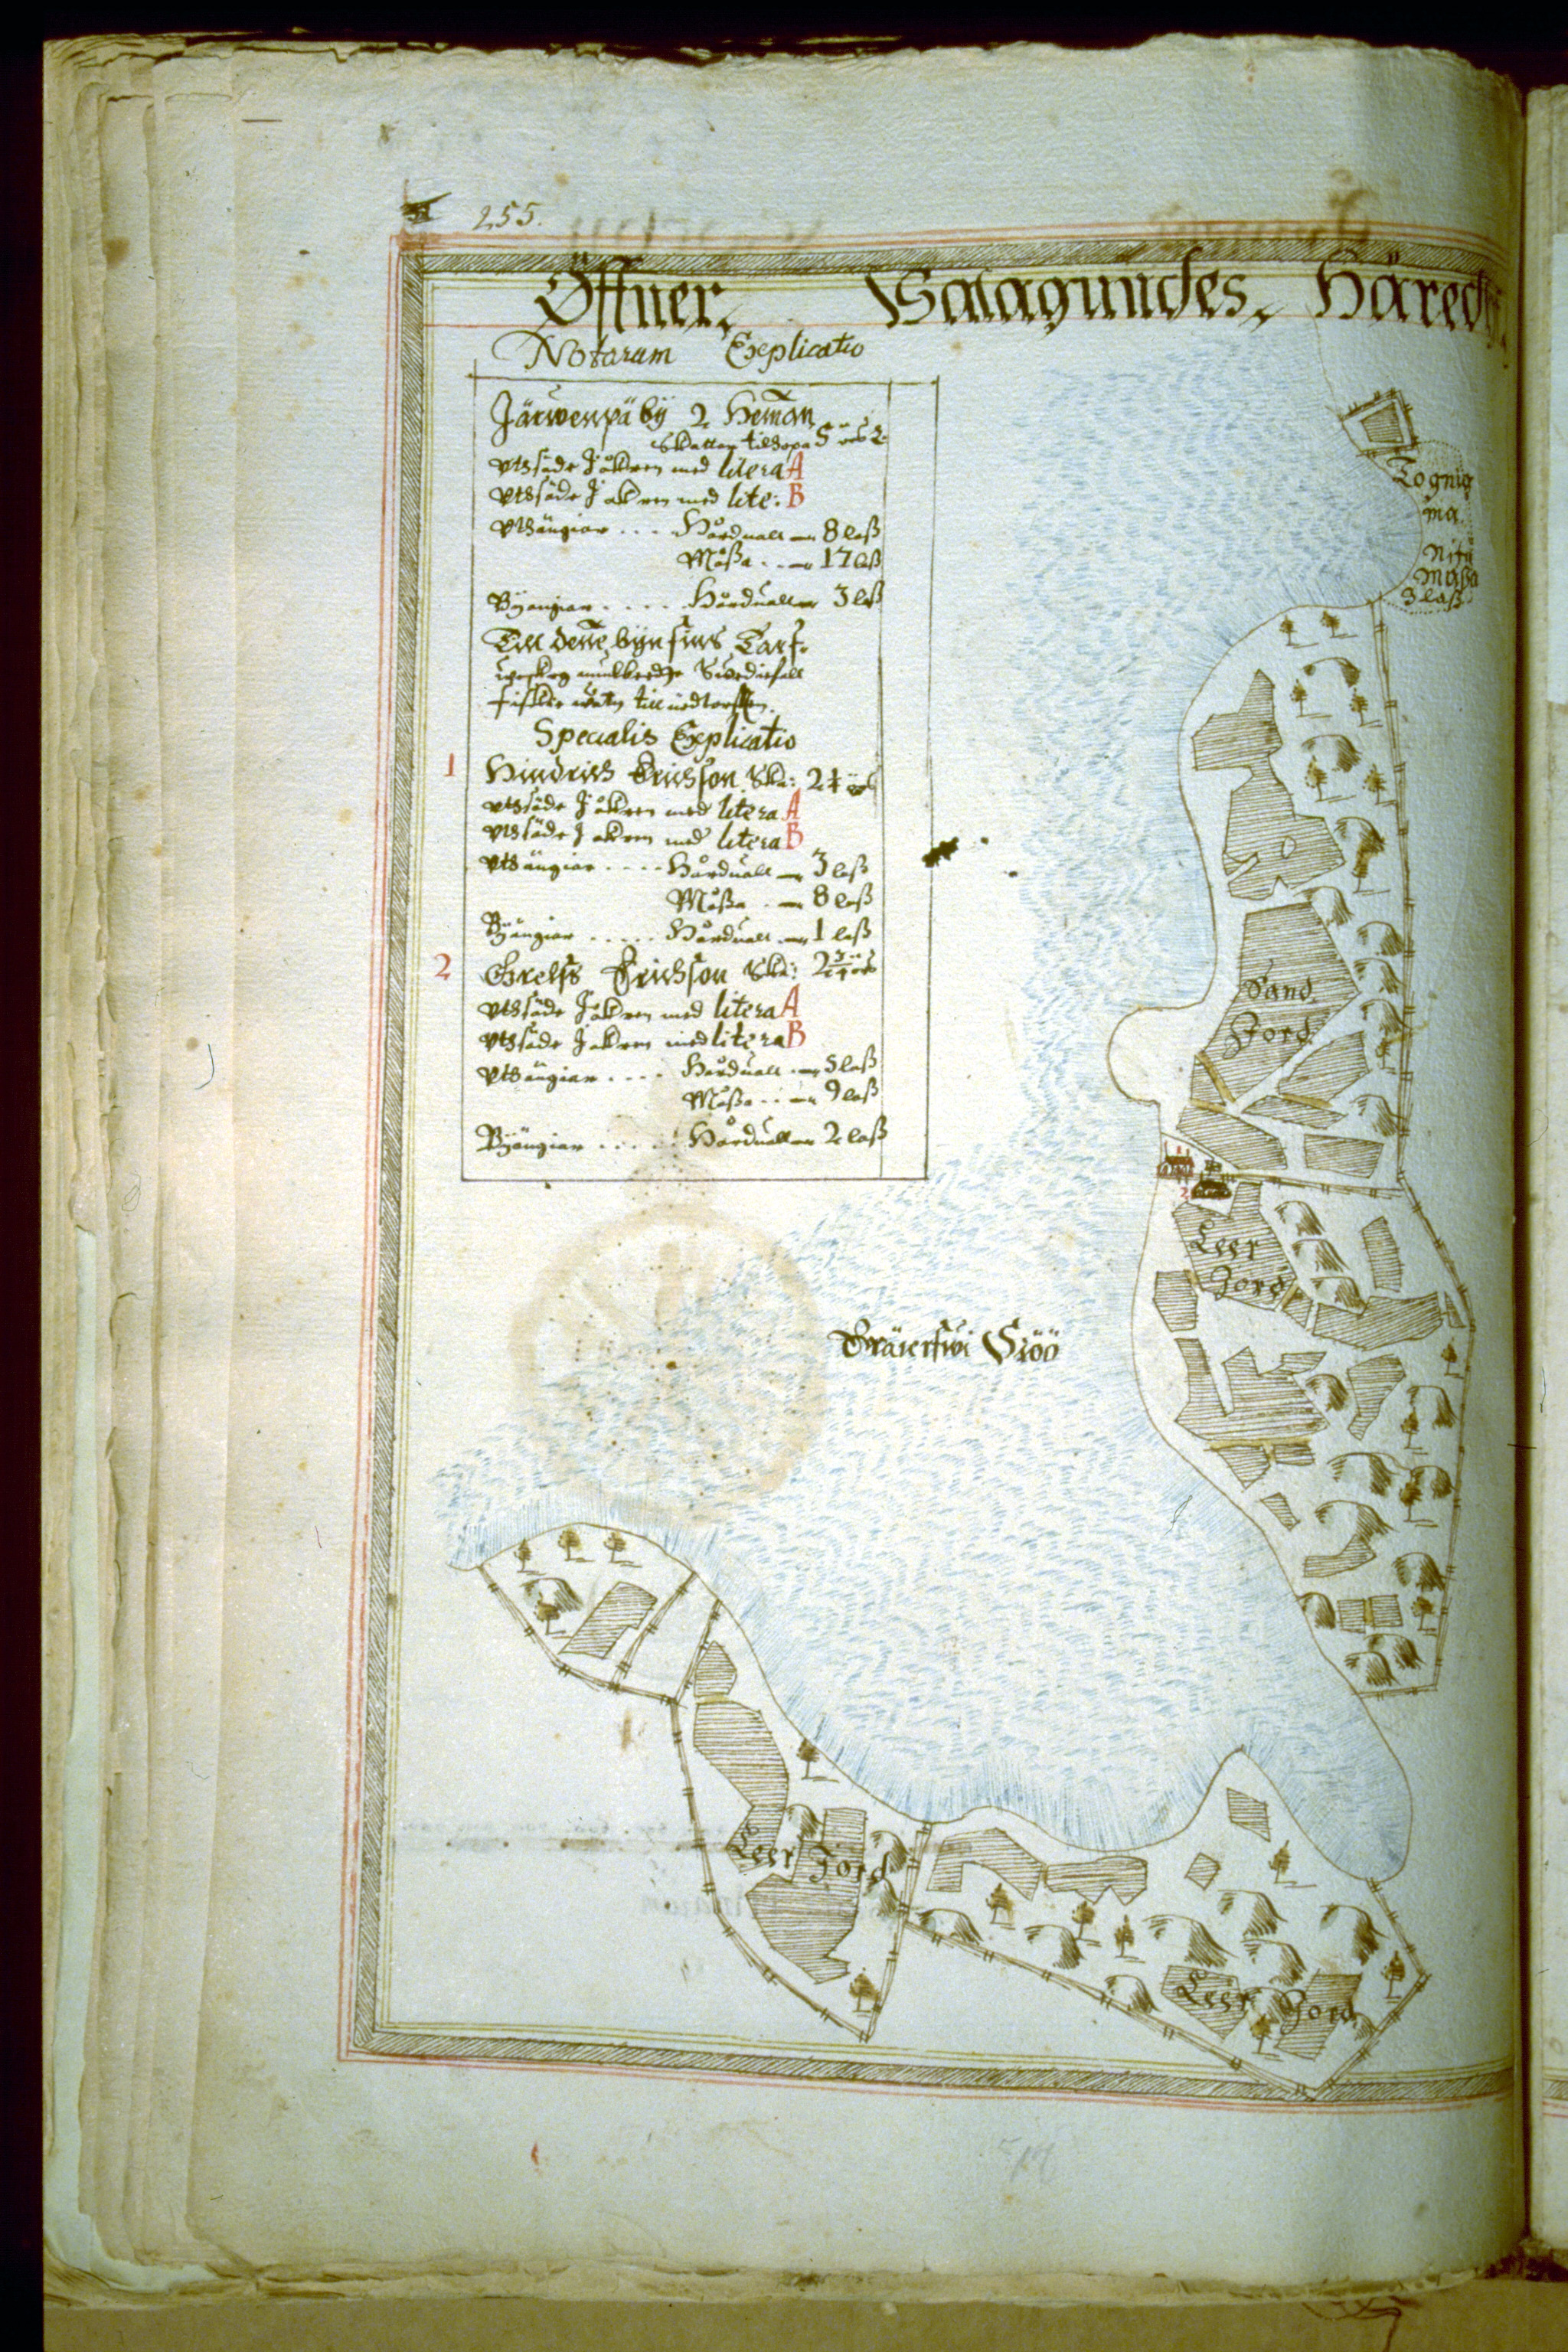 255.
Öffner Satagundes Häredh
Notarum Explicatio
Järwenpä bÿ 2 Heman
Skatten tilhopa 5 örs
Vthsäde J åkren med litera A
Vthsäde J åkren med lite: B
Vthängiar ... Hårduall 8 laß
Måßa .. 17 laß
Bÿängiar .... Hårduall 3 laß
Till denne byn fins Tarf-
fiskie watn till nödtorfften.
Specialis Explicatio
1 Hindrich Erichson Ska: 2¼ örs
Vthsäde J åkren med litera A
Vthsäde J åkren med litera B
Vthängiar .... Hårduall 3 laß
Måßa . 8 laß
Bÿängiar ..... Hårduall 1 laß
2 Grels Erichson Ska: 2¾ örs
Vthsäde J åkren med litera A
Vthsäde J åkren med litera B
Vthängiar .... Hårduall 5 laß
Måßa .. 9 laß
Bÿängiar ..... Hårduall 2 laß
Nitÿ
Måßa
3 laß
Sand
Jord
1
2
Leer
Jord
Siöö
Leer Jord
Leer Jord